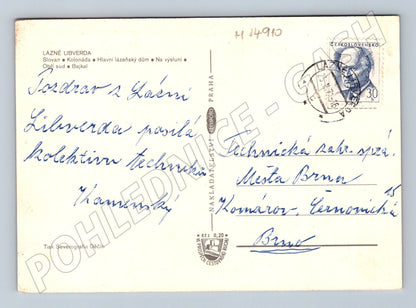 M 14910
LÁZNĚ LIBVERDA
Slovan • Kolonáda • Hlavní lázeňský dům • Na výsluní •
Obří sud • Bajkal
ČESKOSLOVENSKO
30
LÁZNĚ LIBVERDA
Pozdrav z Lázní
Libverda posílá
kolektivu techniků
Kamenský
NAKLADATELSTVÍ ORBIS PRAHA
Technická zahr. správa
Města Brna
Komárov, Černovická 15
Brno
Tisk Severografia Děčín
Kčs 0,20
POHLEDNICE - CASH